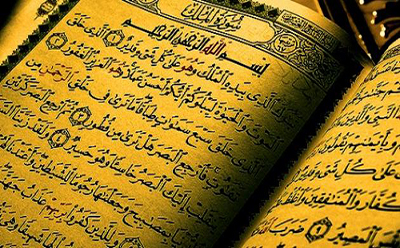 سورة الملك
بسم الله الرحمن الرحيم
تبرك الذي بيده الملك وهو على كل شيء قدير ١ الذي خلق
الموت والحيوة ليبلوكم أيكم أحسن عملا وهو العزيز الغفور ٢
الذي خلق سبع سموت طباقا ما ترى في خلق الرحمن من
تفوت فارجع البصر هل ترى من فطور ٣ ثم ارجع البصر كرتين
ينقلب إليك البصر خاسئا وهو حسير ٤ ولقد زينا
بمصبيح وجعلنها رجوما للشيطين وأعتدنا
وللذين كفروا بربهم عذاب جهنم
النبي والذين
وبأيمنهم يقولون
على كل شيء قدير
الكفار والمنفقين واغلظ
المصير ٩ ضرب الله